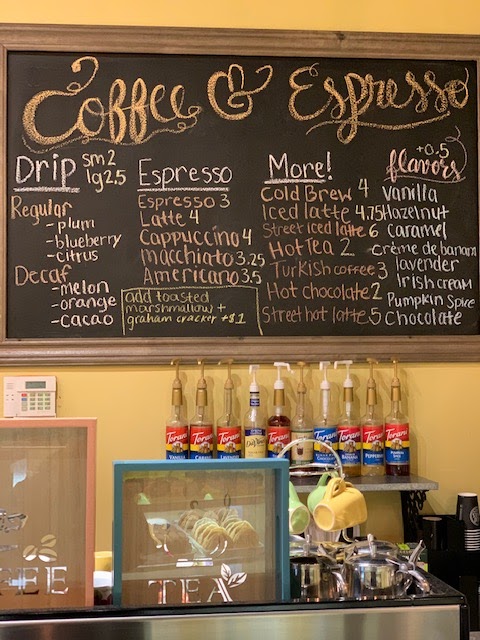 Coffee & Espresso
Drip sm 2
lg 2.5
Regular
- plum
- blueberry
- citrus
Decaf
- melon
- orange
- cacao
Espresso
Espresso 3
Latte 4
Cappuccino 4
macchiato 3.25
Americano 3.5
add toasted
marshmallow +
graham cracker +$1
More!
Cold Brew 4
Iced latte 4.75
Street iced latte 6
Hot Tea 2
Turkish coffee 3
Hot chocolate 2
Street hot latte 5
+0.5
flavors
Vanilla
Hazelnut
caramel
crème de banana
lavender
Irish cream
Pumpkin Spice
Chocolate
Torani
Torani
Torani
Torani
Torani
Torani
Torani
Torani
VANILLA
LAVENDER
TEA